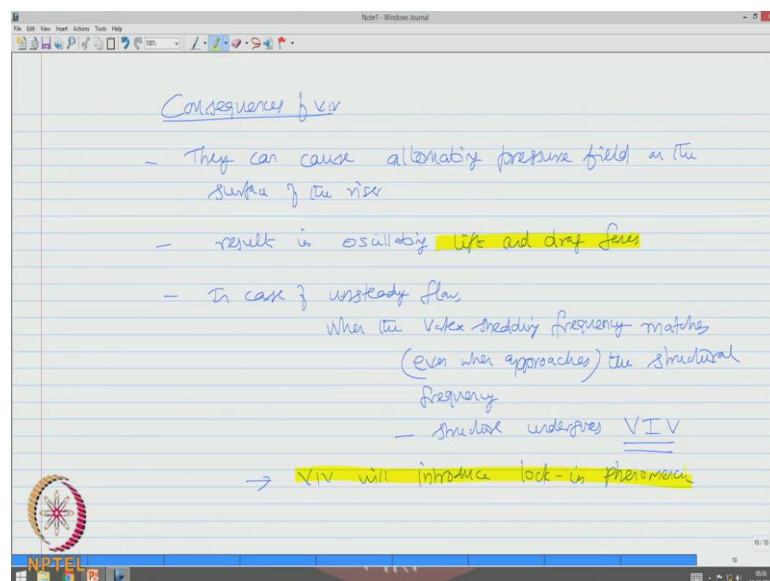 Note1 - Windows Journal
File Edit View Insert Actions Tools Help
Consequences of VIV
- They can cause alternating pressure field on the
surface of the riser
- result is oscillating lift and drag forces
- In case of unsteady flow,
when the vortex shedding frequency matches
(even when approaches) the structural
frequency
- structure undergoes VIV
→ VIV will introduce lock-in phenomenon
NPTEL
10/10
10